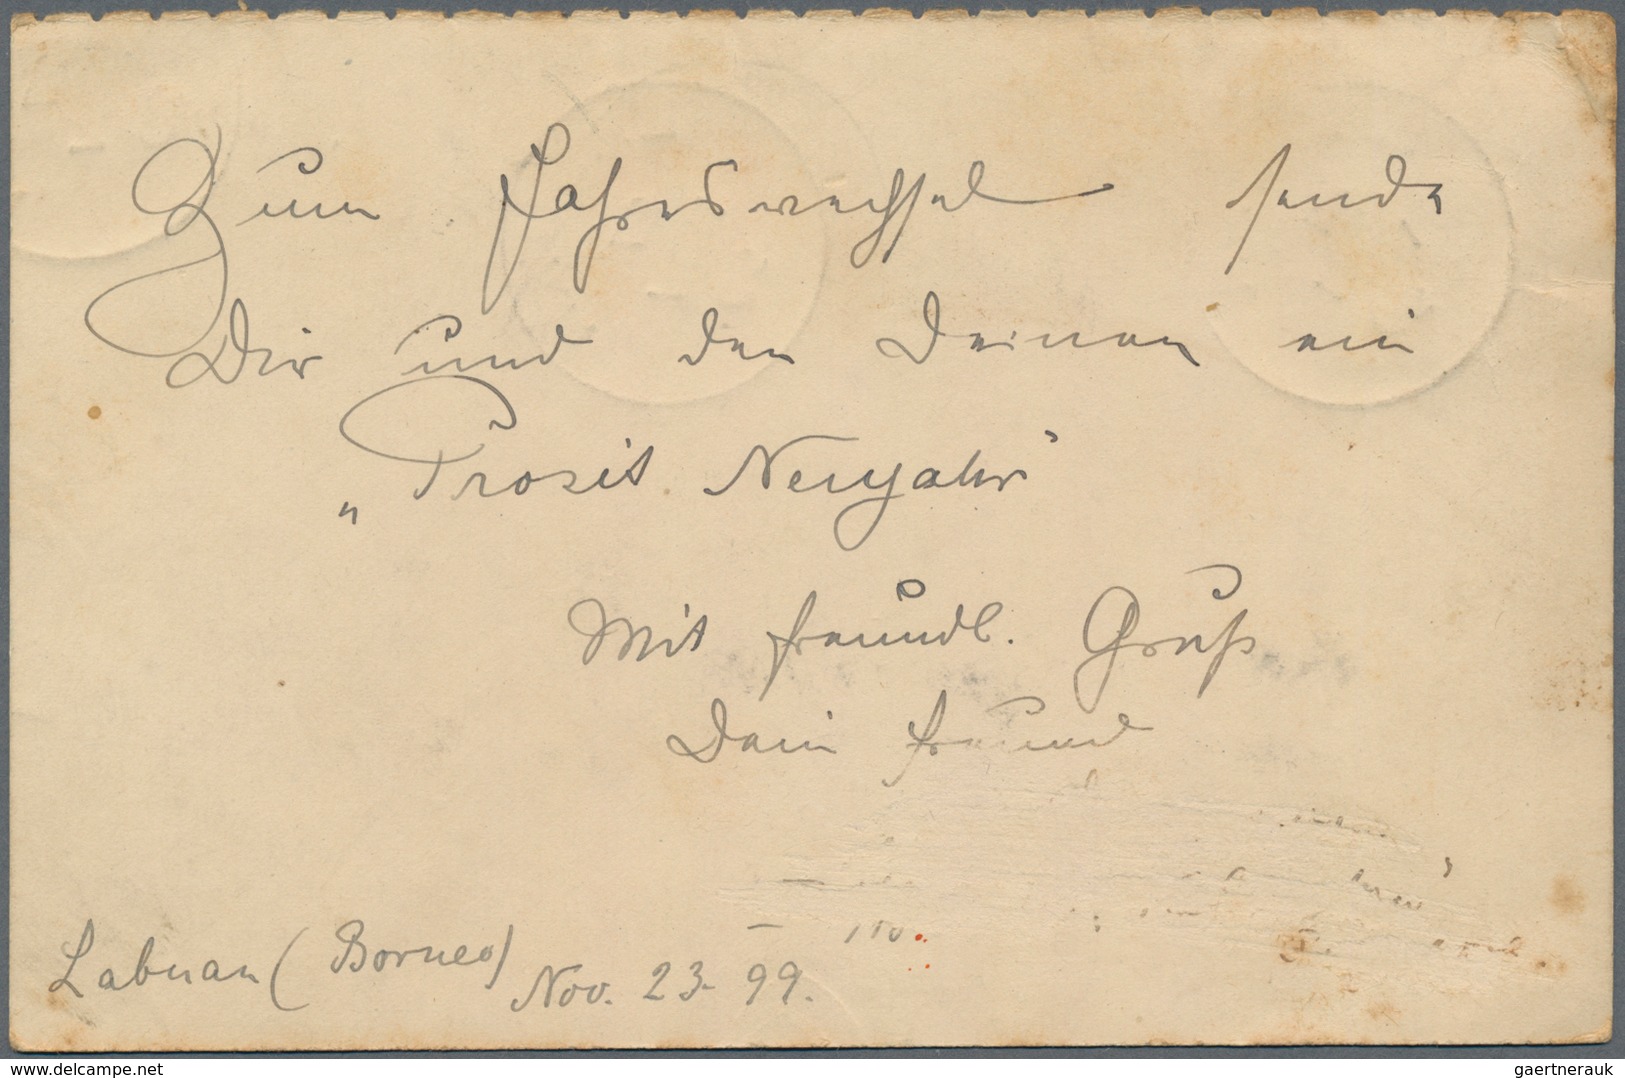 Zum Jahreswechsel sende
Dir und den Deinen ein
„Prosit Neujahr"
Mit freundl. Gruß
Dein Freund
Labuan (Borneo) Nov. 23. 99.
delcampe.net
gaertnerauk